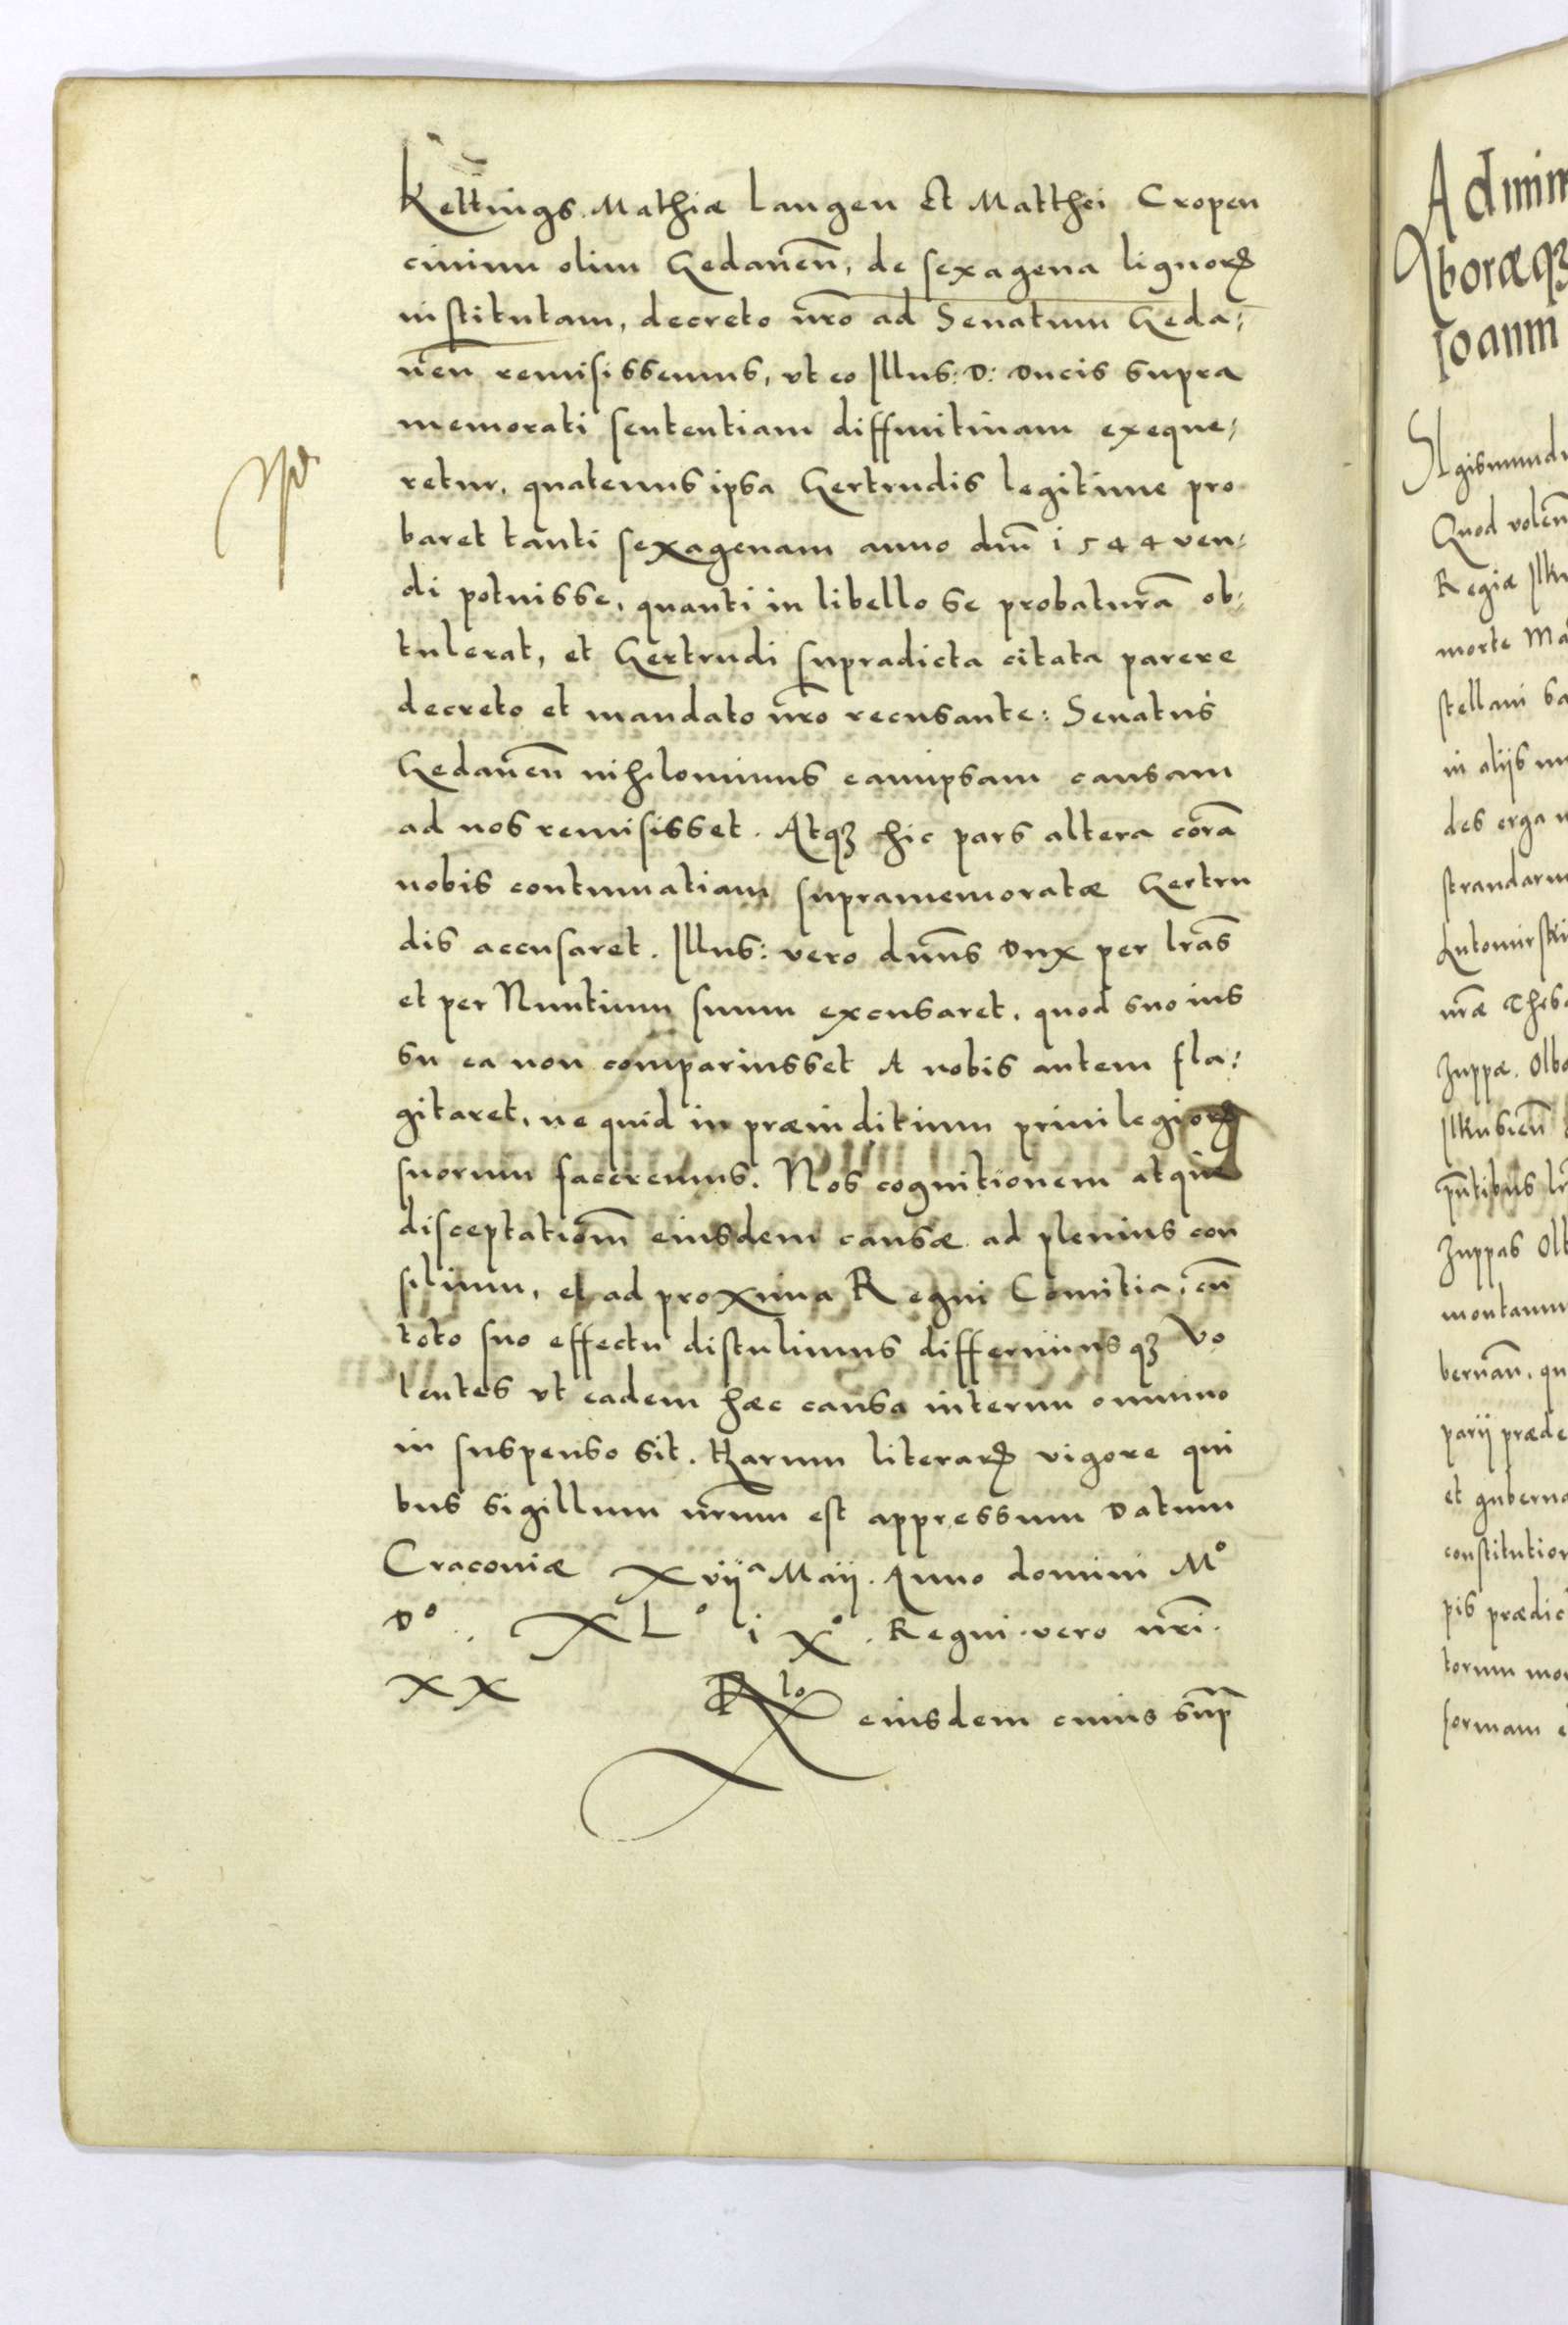 Kettings. Mathiæ Langen Et Matthei Cropen
ciuium olim Gedaneñ, de sexagena lignorꝝ
institutam, decreto nr̃o ad Senatum Geda:
neñ remisissemus, vt eo Illus: D: Ducis supra
memorati sententiam diffinitiuam exeque:
retur, quatenus ipsa Gertrudis legitime pro
baret tanti sexagenam anno dnĩ 1544 ven:
di potuisse, quanti in libello se probaturã ob:
tulerat, et Gertrudi supradicta citata parere
decreto et mandato nr̃o recusante: Senatus
Gedaneñ nihilominus eamipsam causam
ad nos remisisset. Atqꝫ hic pars altera corã
nobis contumatiam supramemoratæ Gertru
dis accusaret. Illus: vero dnñs Dux per lr̃as
et per Nuntium suum excusaret, quod suo ius
su ea non comparuisset A nobis autem fla:
gitaret, ne quid in præiuditium priuilegiorꝝ
suorum faceremus. Nos cognitionem atque
disceptationẽ eiusdem causæ ad plenius con
silium, et ad proxima Regni Comitia, cũ
toto suo effectu distulimus differimusqꝫ Vo
lentes vt eadem hæc causa interim omnino
in suspenso sit. Harum literarꝝ vigore qui
bus sigillum nr̃um est appressum Datum
Cracoviæ Xvijᵃ Maij. Anno domini M°
D°. XL° iX°. Regni vero nr̃i.
XX
Rlo eiusdem cuius supᷓ
Admini
Olboræqꝫ
Joanni
SIgismundu
Quod volen
Regiæ Ilku
morte Ma
stellani sa
in alijs
des erga
strandarum
Lutomirski
nr̃æ Thesa
Zuppæ. Olbo
Ilkusieñ
pñtibus lr̃
Zuppas Olb
montanu
bernañ. qu
parij præde
et guberna
constitution
pis prædic
torum mo
formam e